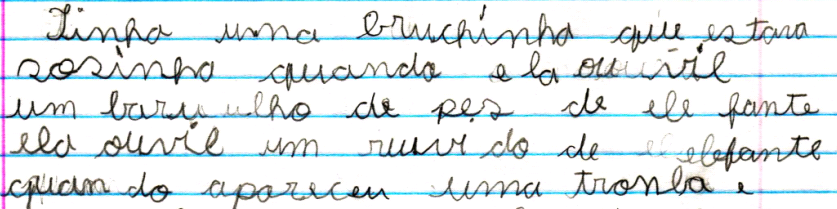 Tinha uma bruchinha que estava
sosinha quando ela ouvil
um baru ulho de pes de ele fante
ela ouvil um ruuvido de elefante
quando apareceu uma tromba e